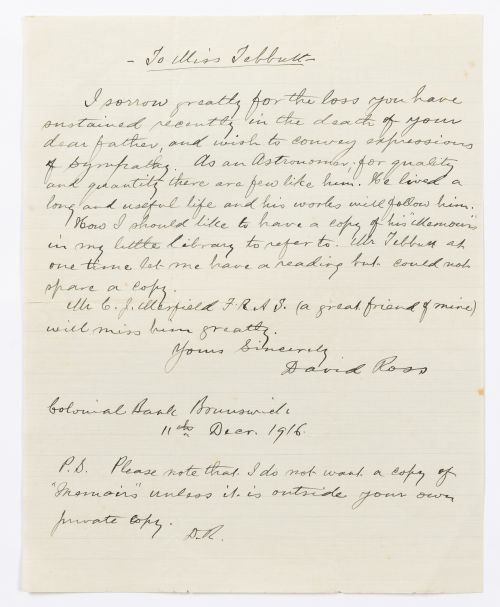 - To Miss Tebbutt -
I sorrow greatly for the loss you have
sustained recently in the death of your
dear father, and wish to convey expressions
of sympathy. As an Astronomer, for quality
and quantity there are few like him. He lived a
long and useful life and his works will follow him.
How I should like to have a copy of his "Memoirs"
in my little library to refer to. Mr Tebbutt at
one time let me have a reading but could not
spare a copy.
Mr C. J. Merfield F.R.A.S. (a great friend of mine)
will miss him greatly.
Yours Sincerely
David Ross
Colonial Bank Brunswick
11th Decr. 1916.
P.S. Please note that I do not want a copy of
"Memoirs" unless it is outside your own
private copy.
D.R.